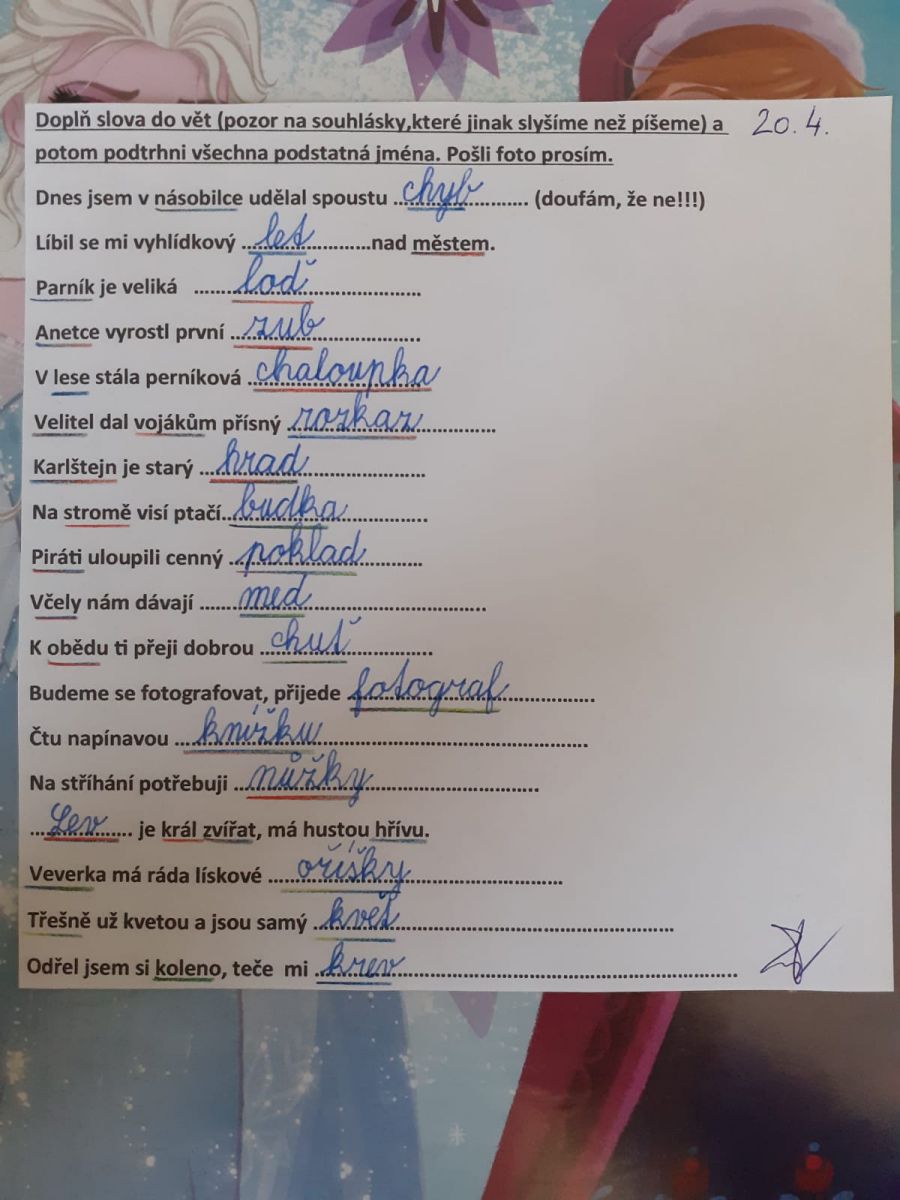 Doplň slova do vět (pozor na souhlásky,které jinak slyšíme než píšeme) a 20.4.
potom podtrhni všechna podstatná jména. Pošli foto prosím.
Dnes jsem v násobilce udělal spoustu ...chyb............. (doufám, že ne!!!)
Líbil se mi vyhlídkový ...let............nad městem.
Parník je veliká .......loď..................
Anetce vyrostl první ...zub.................
V lese stála perníková ...chaloupka
Velitel dal vojákům přísný ...rozkaz.............
Karlštejn je starý ...hrad....................
Na stromě visí ptačí...budka...............
Piráti uloupili cenný ...poklad...........
Včely nám dávají .......med...............................
K obědu ti přeji dobrou ...chuť..............
Budeme se fotografovat, přijede ...fotograf................
Čtu napínavou ...knížku...........................................
Na stříhání potřebuji ...nůžky............................
...Lev..... je král zvířat, má hustou hřívu.
Veverka má ráda lískové ....oříšky..........................
Třešně už kvetou a jsou samý ...květ..............................................
Odřel jsem si koleno, teče mi ...krev........................................................